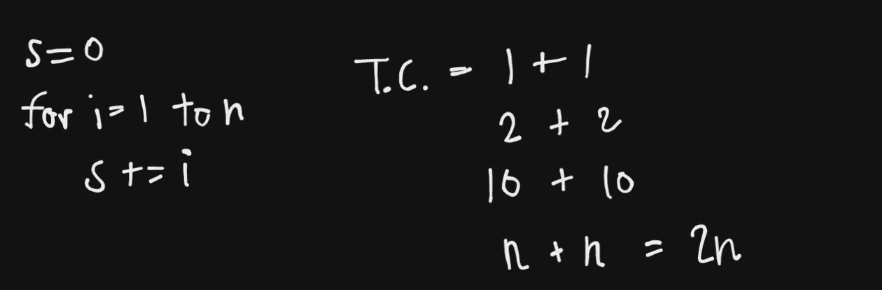 s=0
for i=1 to n
s += i
T.C. = 1 + 1
2 + 2
10 + 10
n + n = 2n